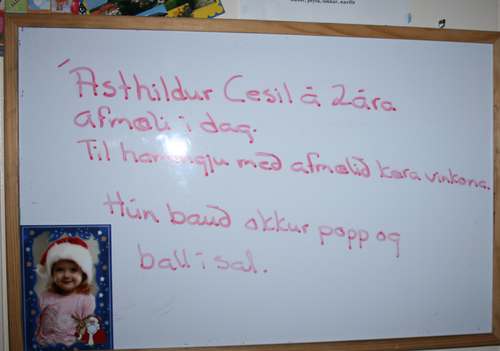 Ásthildur Cesil á 2 ára
afmæli í dag.
Til hamingju með afmælið kæra vinkona.
Hún bauð okkur popp og
ball í sal.